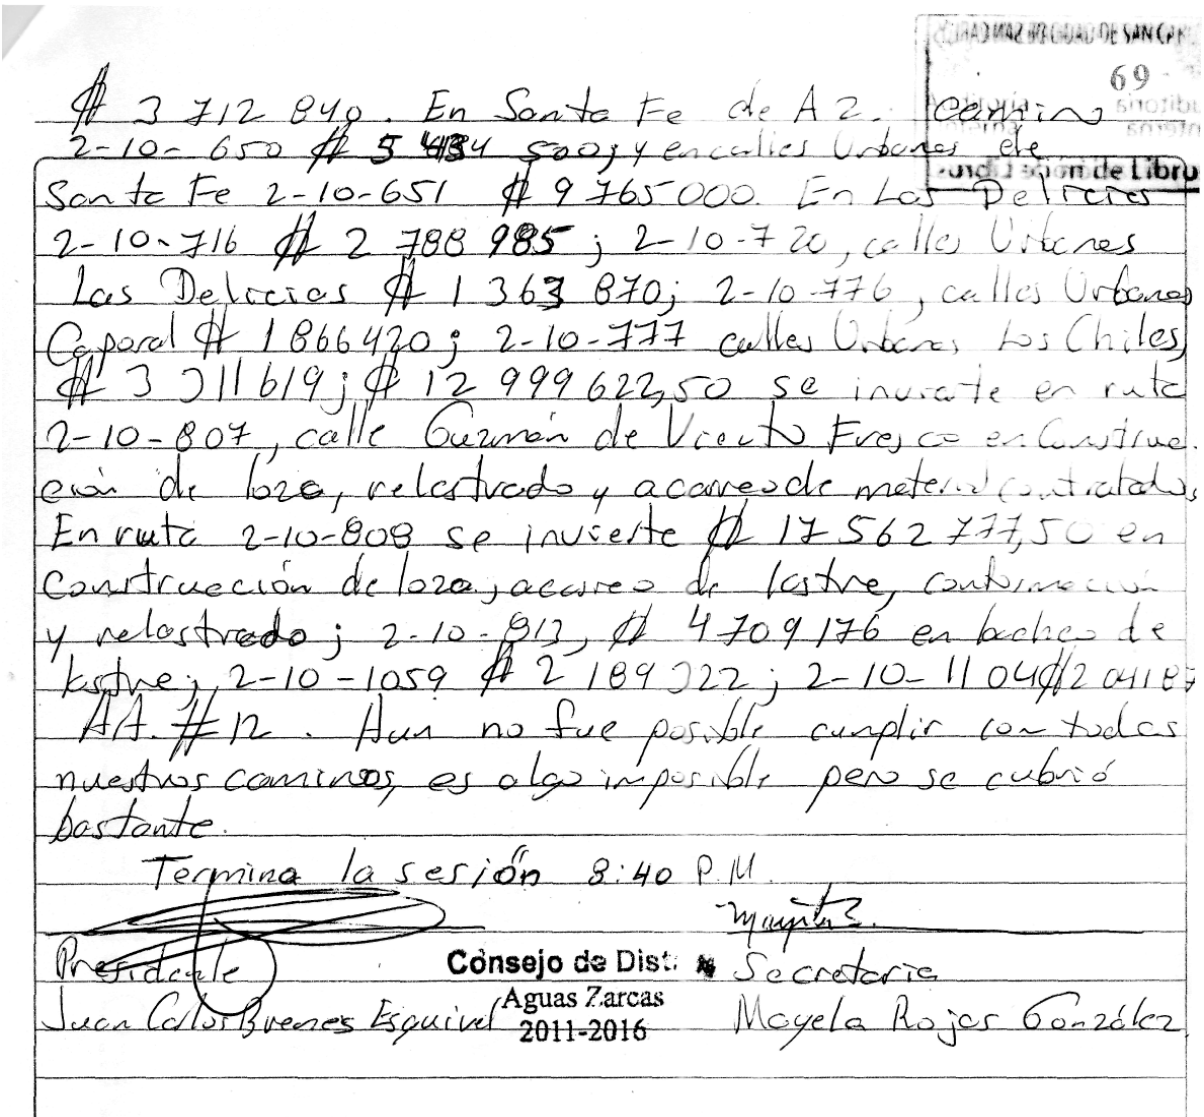 MUNICIPALIDAD DE SAN CARLOS
69
₡ 3 712 840. En Santa Fe de A Z. Camino
2-10-650 ₡ 5 434 500; y en calles Urbanas de
Santa Fe 2-10-651 ₡ 9 765 000. En Las Delicias
2-10-716 ₡ 2 788 985; 2-10-720, calles Urbanas
Las Delicias ₡ 1 363 870; 2-10-776, calles Urbanas
Caporal ₡ 1866420; 2-10-777 calles Urbanas Los Chiles,
₡ 3 311 619; ₡ 12 999 622,50 se invierte en ruta
2-10-807, calle Guzmán de Viento Fresco en Construc-
ción de loza, relastrado y acarreo de material contratados.
En ruta 2-10-808 se invierte ₡ 17 562 777,50 en
Construcción de loza, acarreo de lastre, conformación
y relastrado; 2-10-813, ₡ 4 709 176 en bacheo de
lastre; 2-10-1059 ₡ 2 189 322; 2-10-1104 ₡ 2 04187
AA. #12. Aun no fue posible cumplir con todos
nuestros caminos, es algo imposible pero se cubrió
bastante.
Termina la sesión 8:40 P.M.
Presidente Consejo de Dist. Secretaria
Juan Carlos Brenes Esquivel Aguas Zarcas Mayela Rojas González
2011-2016